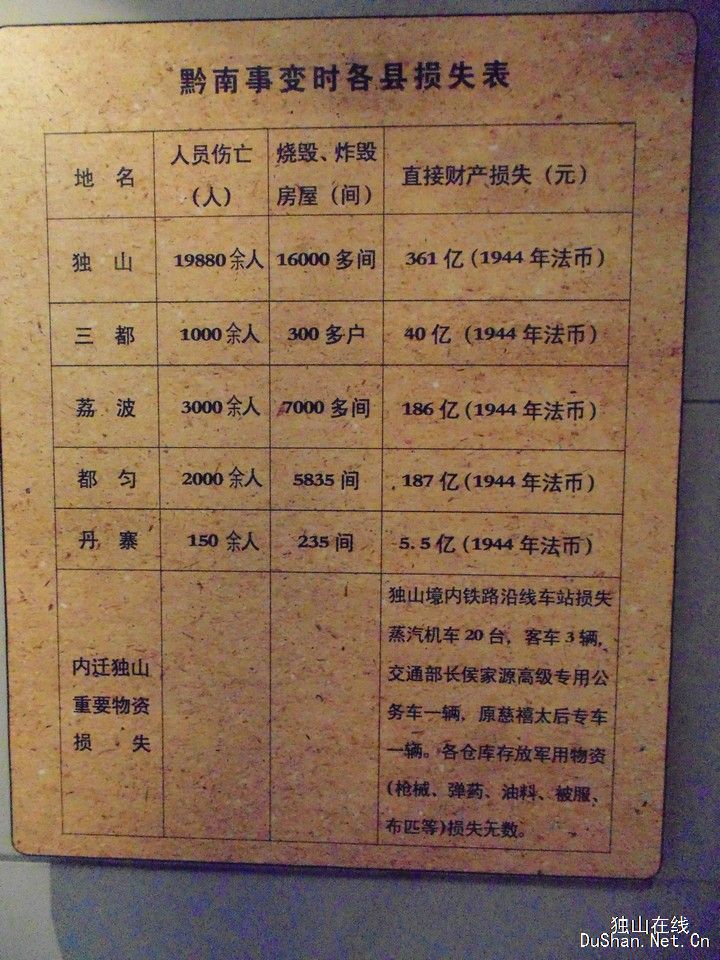 黔南事变时各县损失表
地 名 人员伤亡(人) 烧毁、炸毁房屋(间) 直接财产损失(元)
独 山 19880余人 16000多间 361亿(1944年法币)
三 都 1000余人 300多户 40亿(1944年法币)
荔 波 3000余人 7000多间 186亿(1944年法币)
都 匀 2000余人 5835间 187亿(1944年法币)
丹 寨 150余人 235间 5.5亿(1944年法币)
内迁独山
重要物资
损 失
独山境内铁路沿线车站损失
蒸汽机车20台，客车3辆，
交通部长侯家源高级专用公
务车一辆，原慈禧太后专车
一辆。各仓库存放军用物资
(枪械、弹药、油料、被服、
布匹等)损失无数。
独山在线
DuShan.Net.Cn